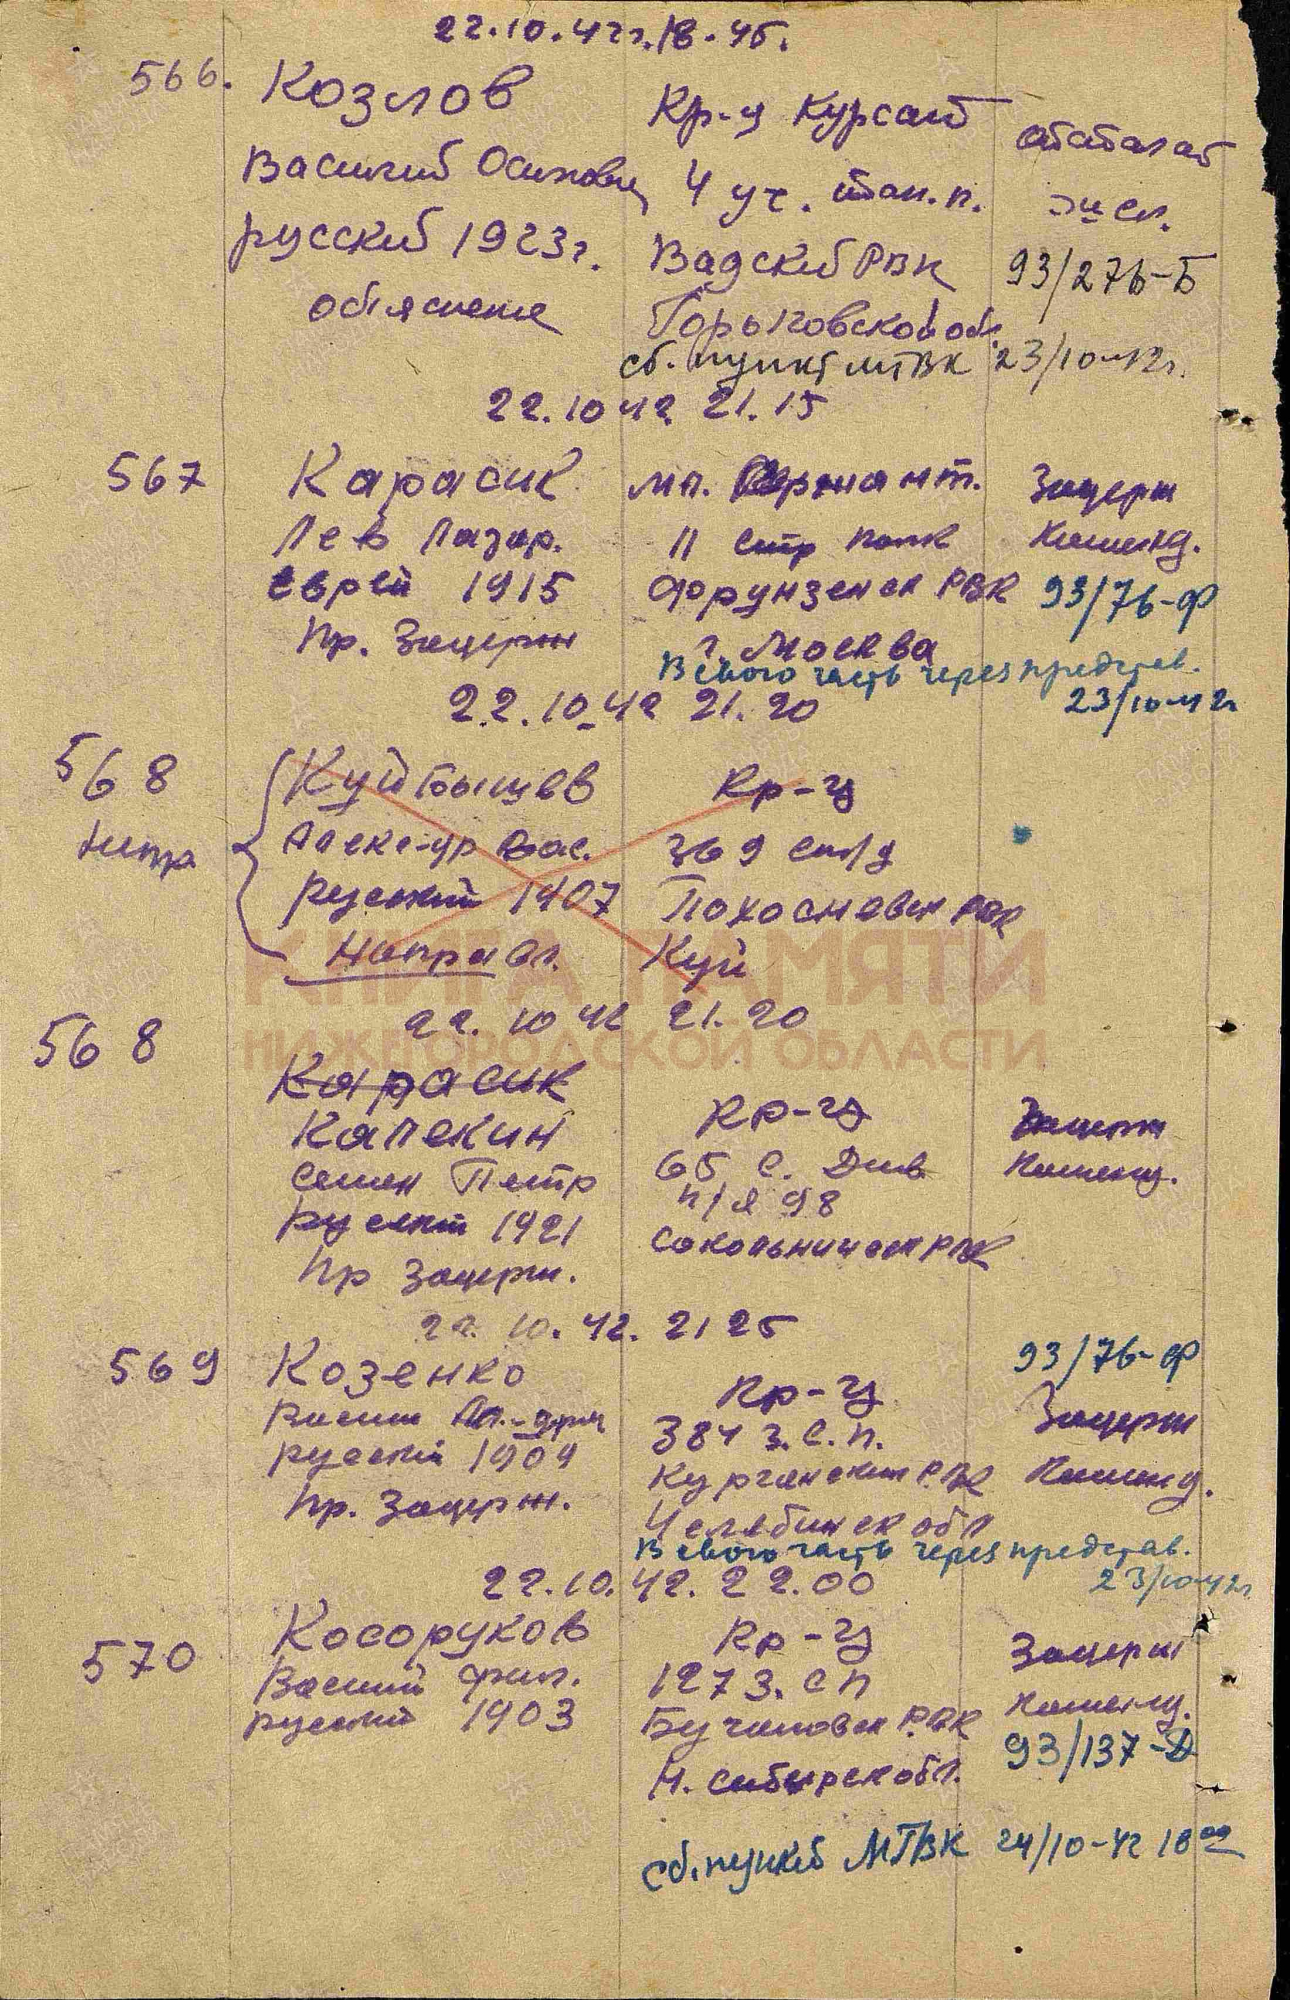 22.10.42г. 18.45.
566. Козлов
Василий Осипович
русский 1923г.
объяснение
Кр-ц Курсант
4 уч. тан. п.
Вадский РВК
Горьковской обл.
сб. пункт МГВК 23/10-42г.
отстал от
эшел.
93/276-Б
22.10 42 21.15
567 Карасик
Лев Лазар.
еврей 1915
Пр. Задерж
мл. Сержант.
11 стр полк
Фрунзенск РВК
г. Москва
В свою часть через представ.
23/10-42г
Задерж
Коменд.
93/76-Ф
22.10.42 21.20
568 Куйбышев
Алекс-др Вас.
русский 1907
Направл.
Кр-ц
369 сп/д
РВК
Куй
22.10 42 21.20
568
Карасик
Калекин
Семен Петр
русский 1921
Пр Задерж.
Кр-ц
65 С. Див
п/я 98
Сокольническ РВК
Задерж
Коменд.
22.10.42. 21 25
569 Козенко
Васил Ал.-др
русский 1904
Пр. Задерж.
Кр-ц
384 з.с.п.
Курганский РВК
Челябинск обл
В свою часть через представ.
23/10-42г
93/76-Ф
Задерж
Коменд.
22.10.42. 22.00
570 Косоруков
Василий Фил.
русский 1903
Кр-ц
127 з. СП
РВК
Н. сибирск обл.
Задерж
Коменд.
93/137-Д
Сб. пункт МГВК 24/10-42 18 00
КНИГА ПАМЯТИ
НИЖЕГОРОДСКОЙ ОБЛАСТИ